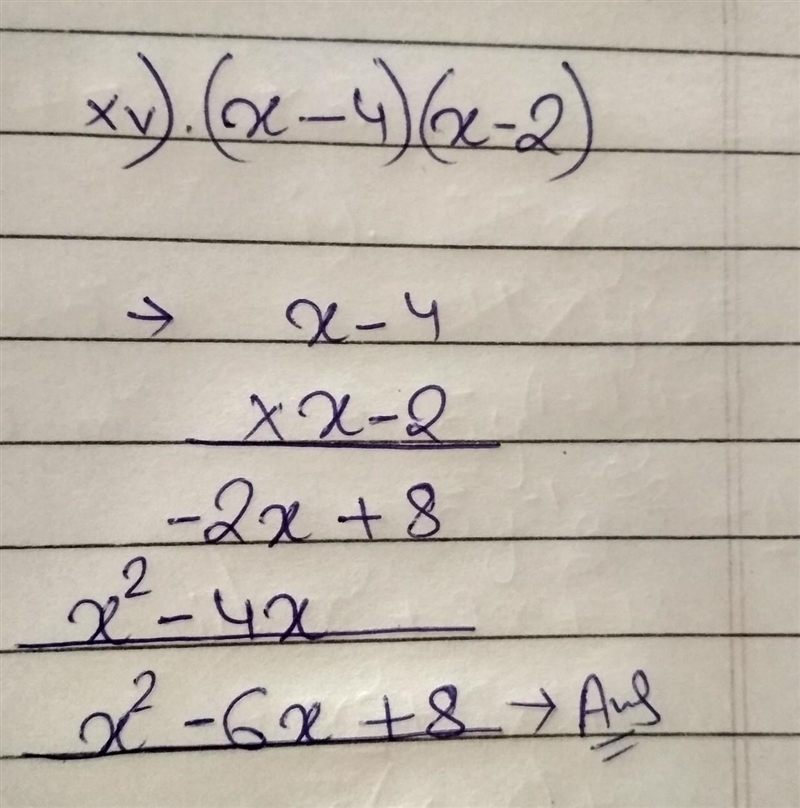 xv). (x-4)(x-2)
→ x-4
× x-2
-2x + 8
x² - 4x
x² - 6x + 8 → Ans